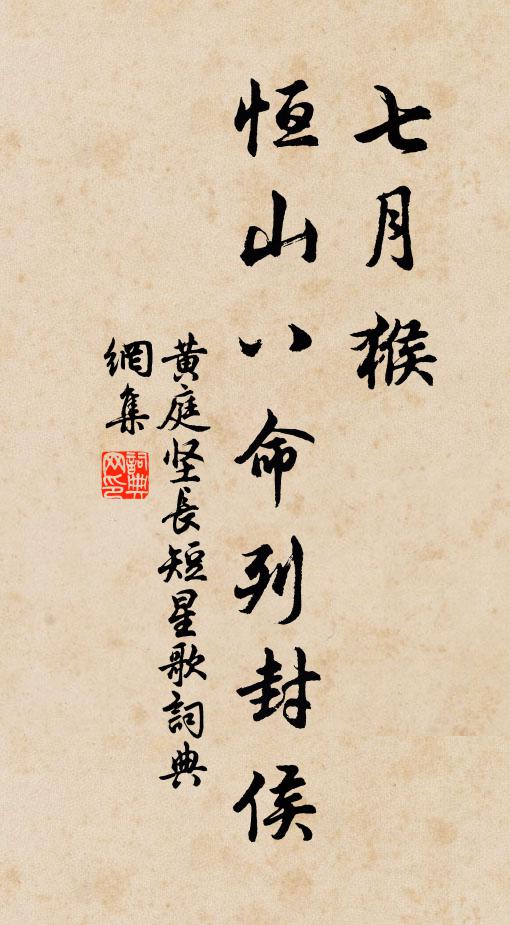 七月猴
恒山八命列封侯
黄庭坚長短星歌詞典
網集
詞典网印